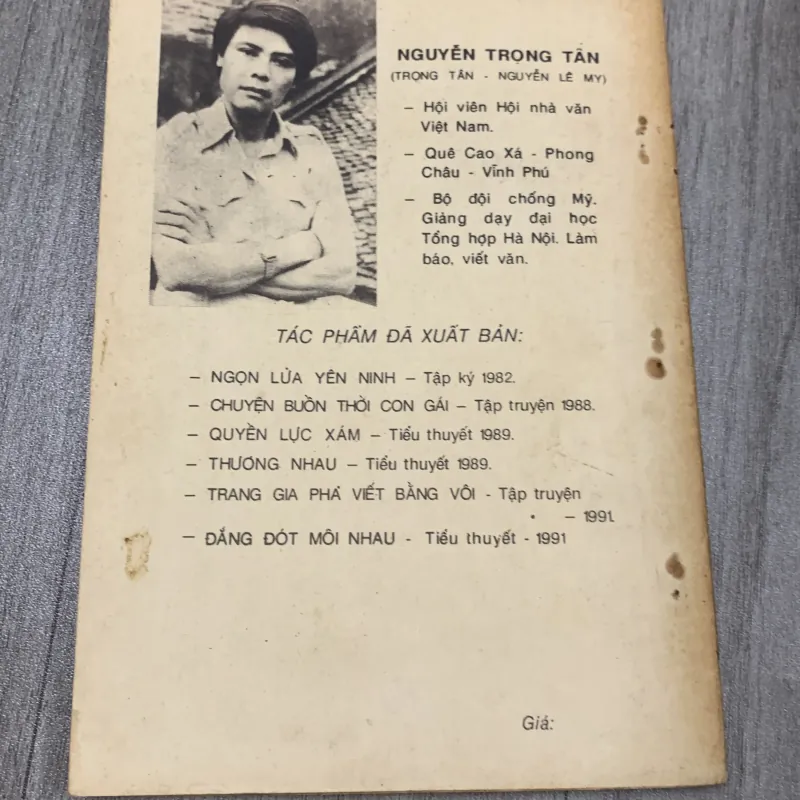 NGUYỄN TRỌNG TÂN
(TRỌNG TÂN - NGUYỄN LÊ MY)
– Hội viên Hội nhà văn
Việt Nam.
– Quê Cao Xá - Phong
Châu - Vĩnh Phú
– Bộ đội chống Mỹ.
Giảng dạy đại học
Tổng hợp Hà Nội. Làm
báo, viết văn.
TÁC PHẨM ĐÃ XUẤT BẢN:
– NGỌN LỬA YÊN NINH – Tập ký 1982.
– CHUYỆN BUỒN THỜI CON GÁI – Tập truyện 1988.
– QUYỀN LỰC XÁM – Tiểu thuyết 1989.
– THƯƠNG NHAU – Tiểu thuyết 1989.
– TRANG GIA PHẢ VIẾT BẰNG VÔI - Tập truyện
– 1991.
– ĐẮNG ĐÓT MÔI NHAU - Tiểu thuyết - 1991
Giá: